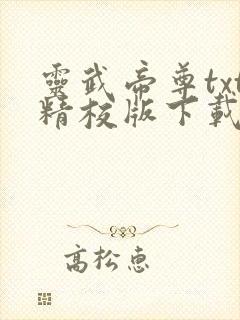 靈武帝尊txt
精校版下載
高松惠